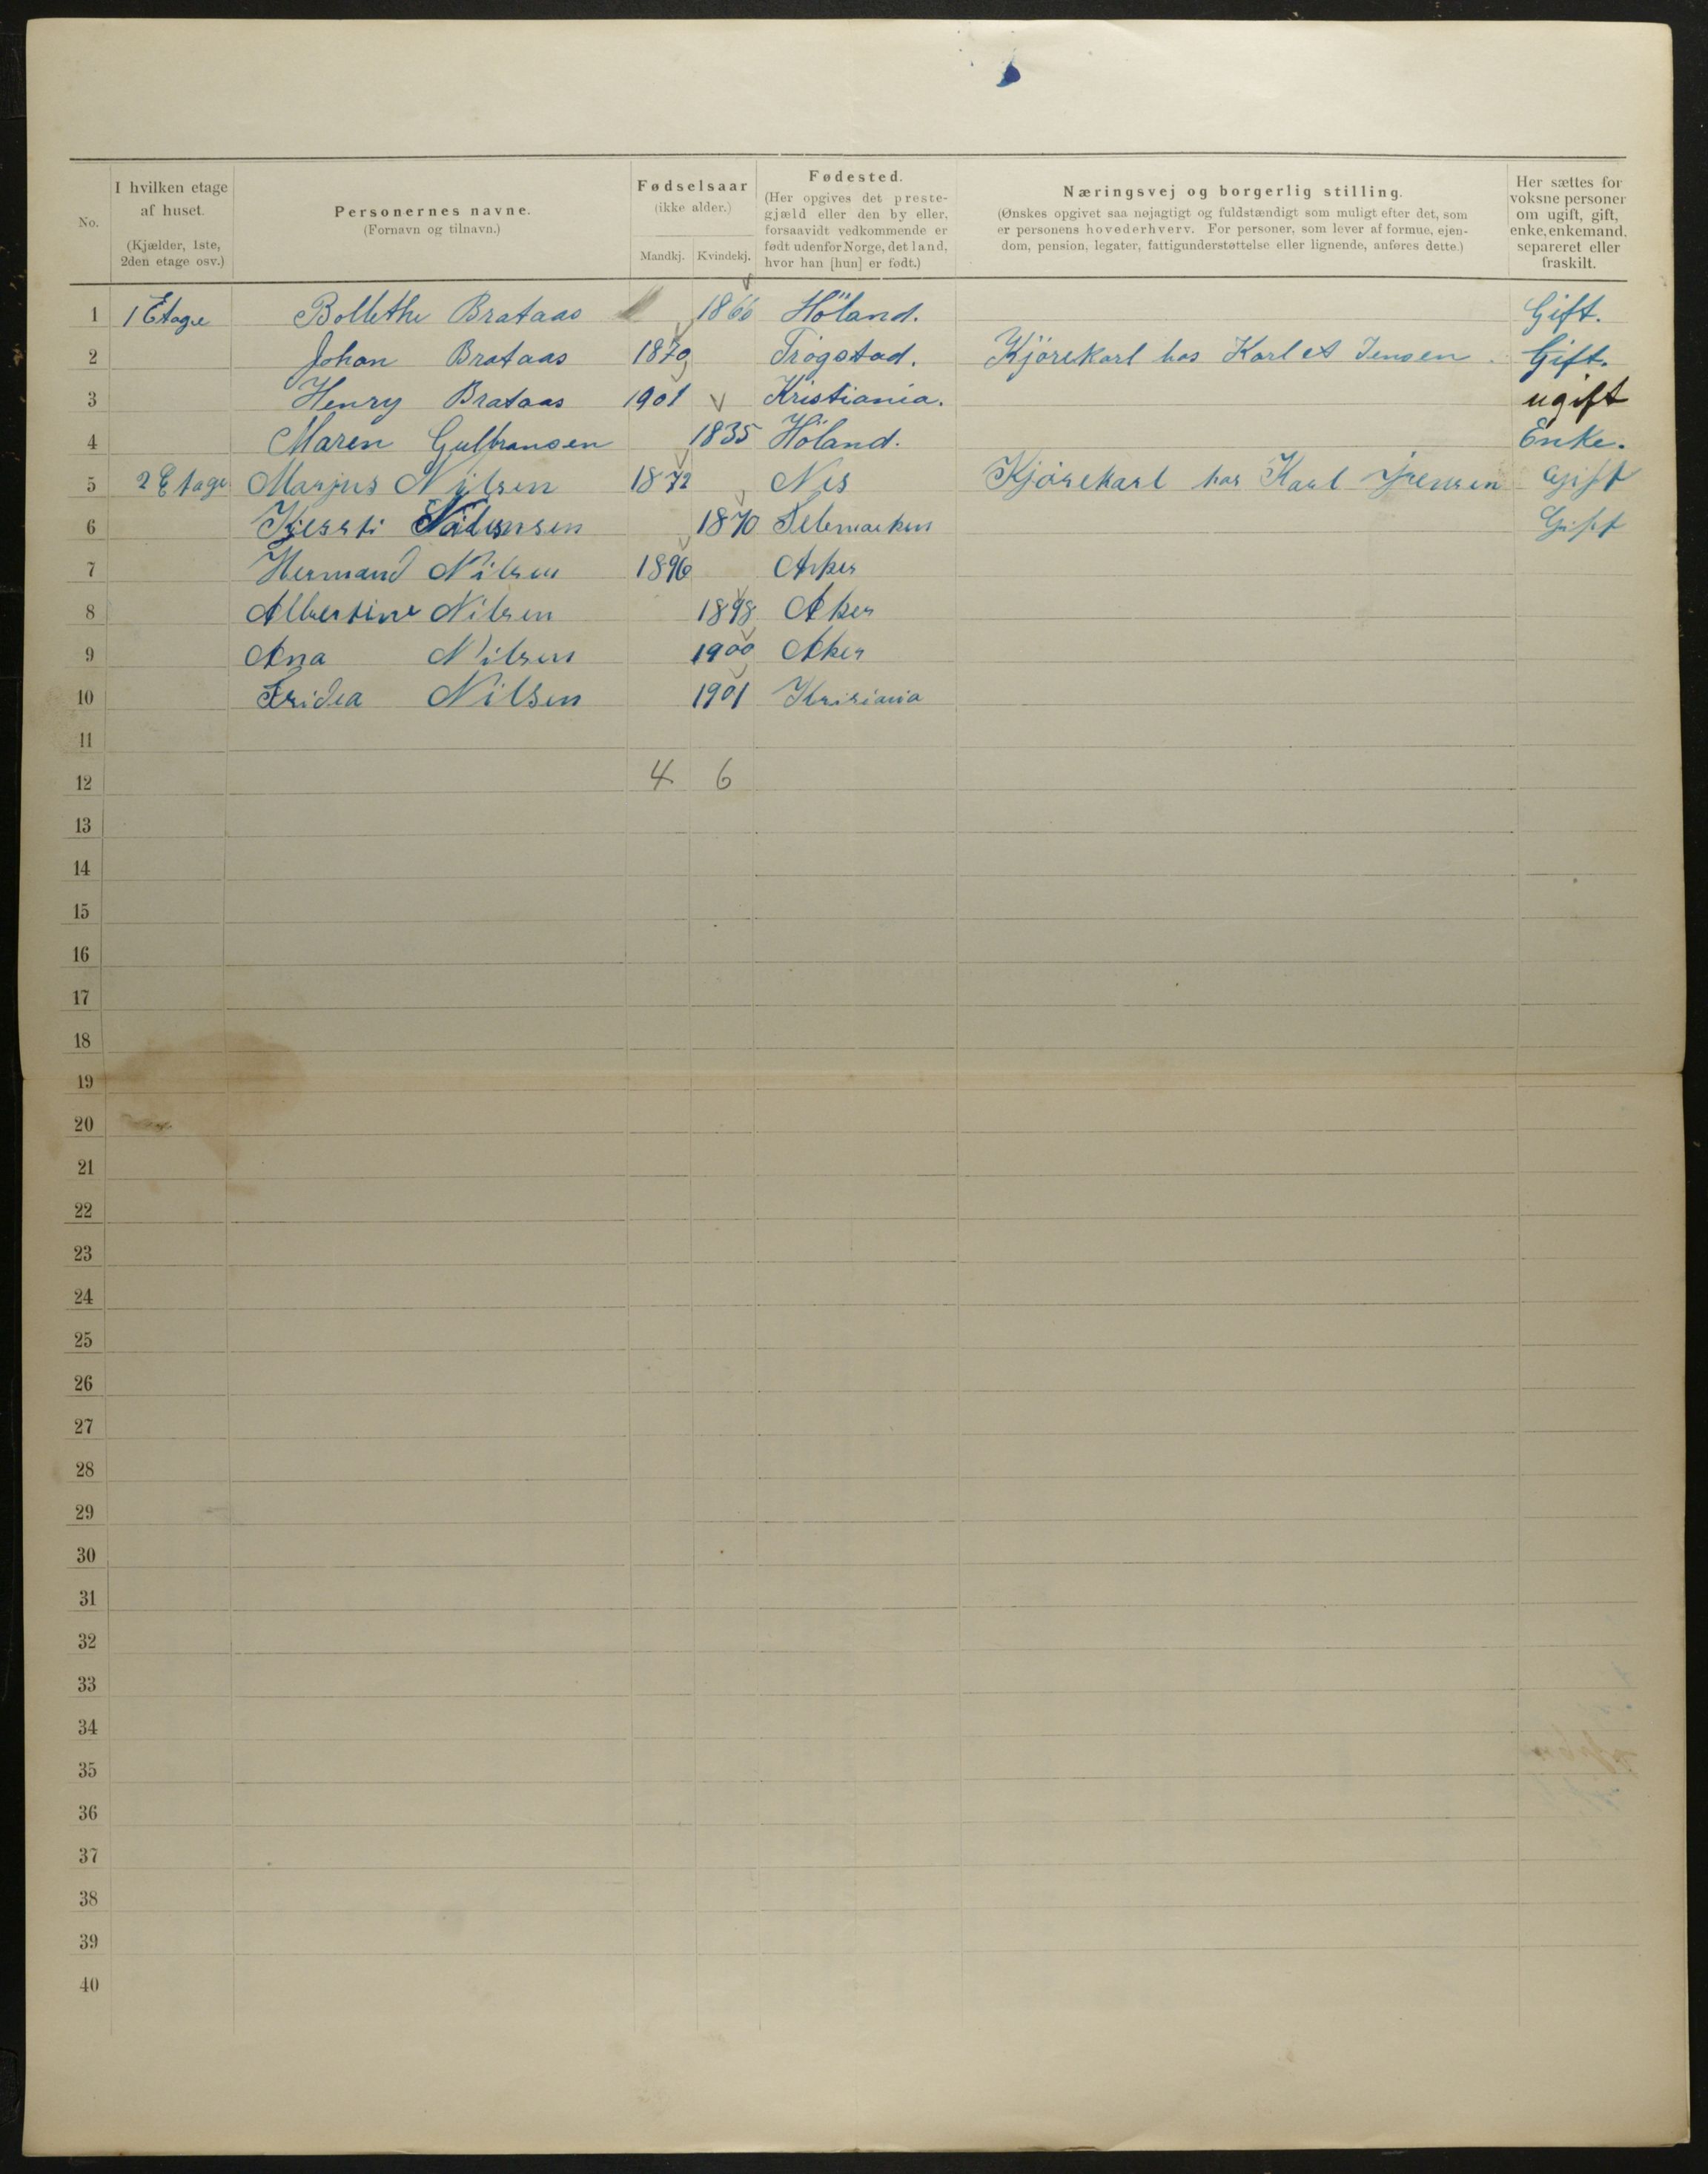 No.
I hvilken etage af huset.
(Kjælder, 1ste, 2den etage osv.)
Personernes navne.
(Fornavn og tilnavn.)
Fødselsaar
(ikke alder.)
Mandkj. Kvindekj.
Fødested.
(Her opgives det prestegjæld eller den by eller, forsaavidt vedkommende er født udenfor Norge, det land, hvor han [hun] er født.)
Næringsvej og borgerlig stilling.
(Ønskes opgivet saa nøjagtigt og fuldstændigt som muligt efter det, som er personens hovederhverv. For personer, som lever af formue, ejendom, pension, legater, fattigunderstøttelse eller lignende, anføres dette.)
Her sættes for voksne personer om ugift, gift, enke, enkemand, separeret eller fraskilt.
1 1 Etage Bollethe Brataas 1866 Höland. Gift.
2 Johan Brataas 1870 Trögstad. Kjörekarl hos Karl et Jensen. Gift.
3 Henry Brataas 1901 Kristiania. ugift
4 Maren Gulbransen 1835 Höland. Enke.
5 2 Etage Marjus Nilsen 1872 Nes Kjörekarl hos Karl Jensen Gift
6 Kjersti 1870 Telemarken Gift
7 Hermand Nilsen 1896 Aker
8 Albertine Nilsen 1898 Aker
9 Ana Nilsen 1900 Aker
10 Fridea Nilsen 1901 Kririania
11
12 4 6
13
14
15
16
17
18
19
20
21
22
23
24
25
26
27
28
29
30
31
32
33
34
35
36
37
38
39
40